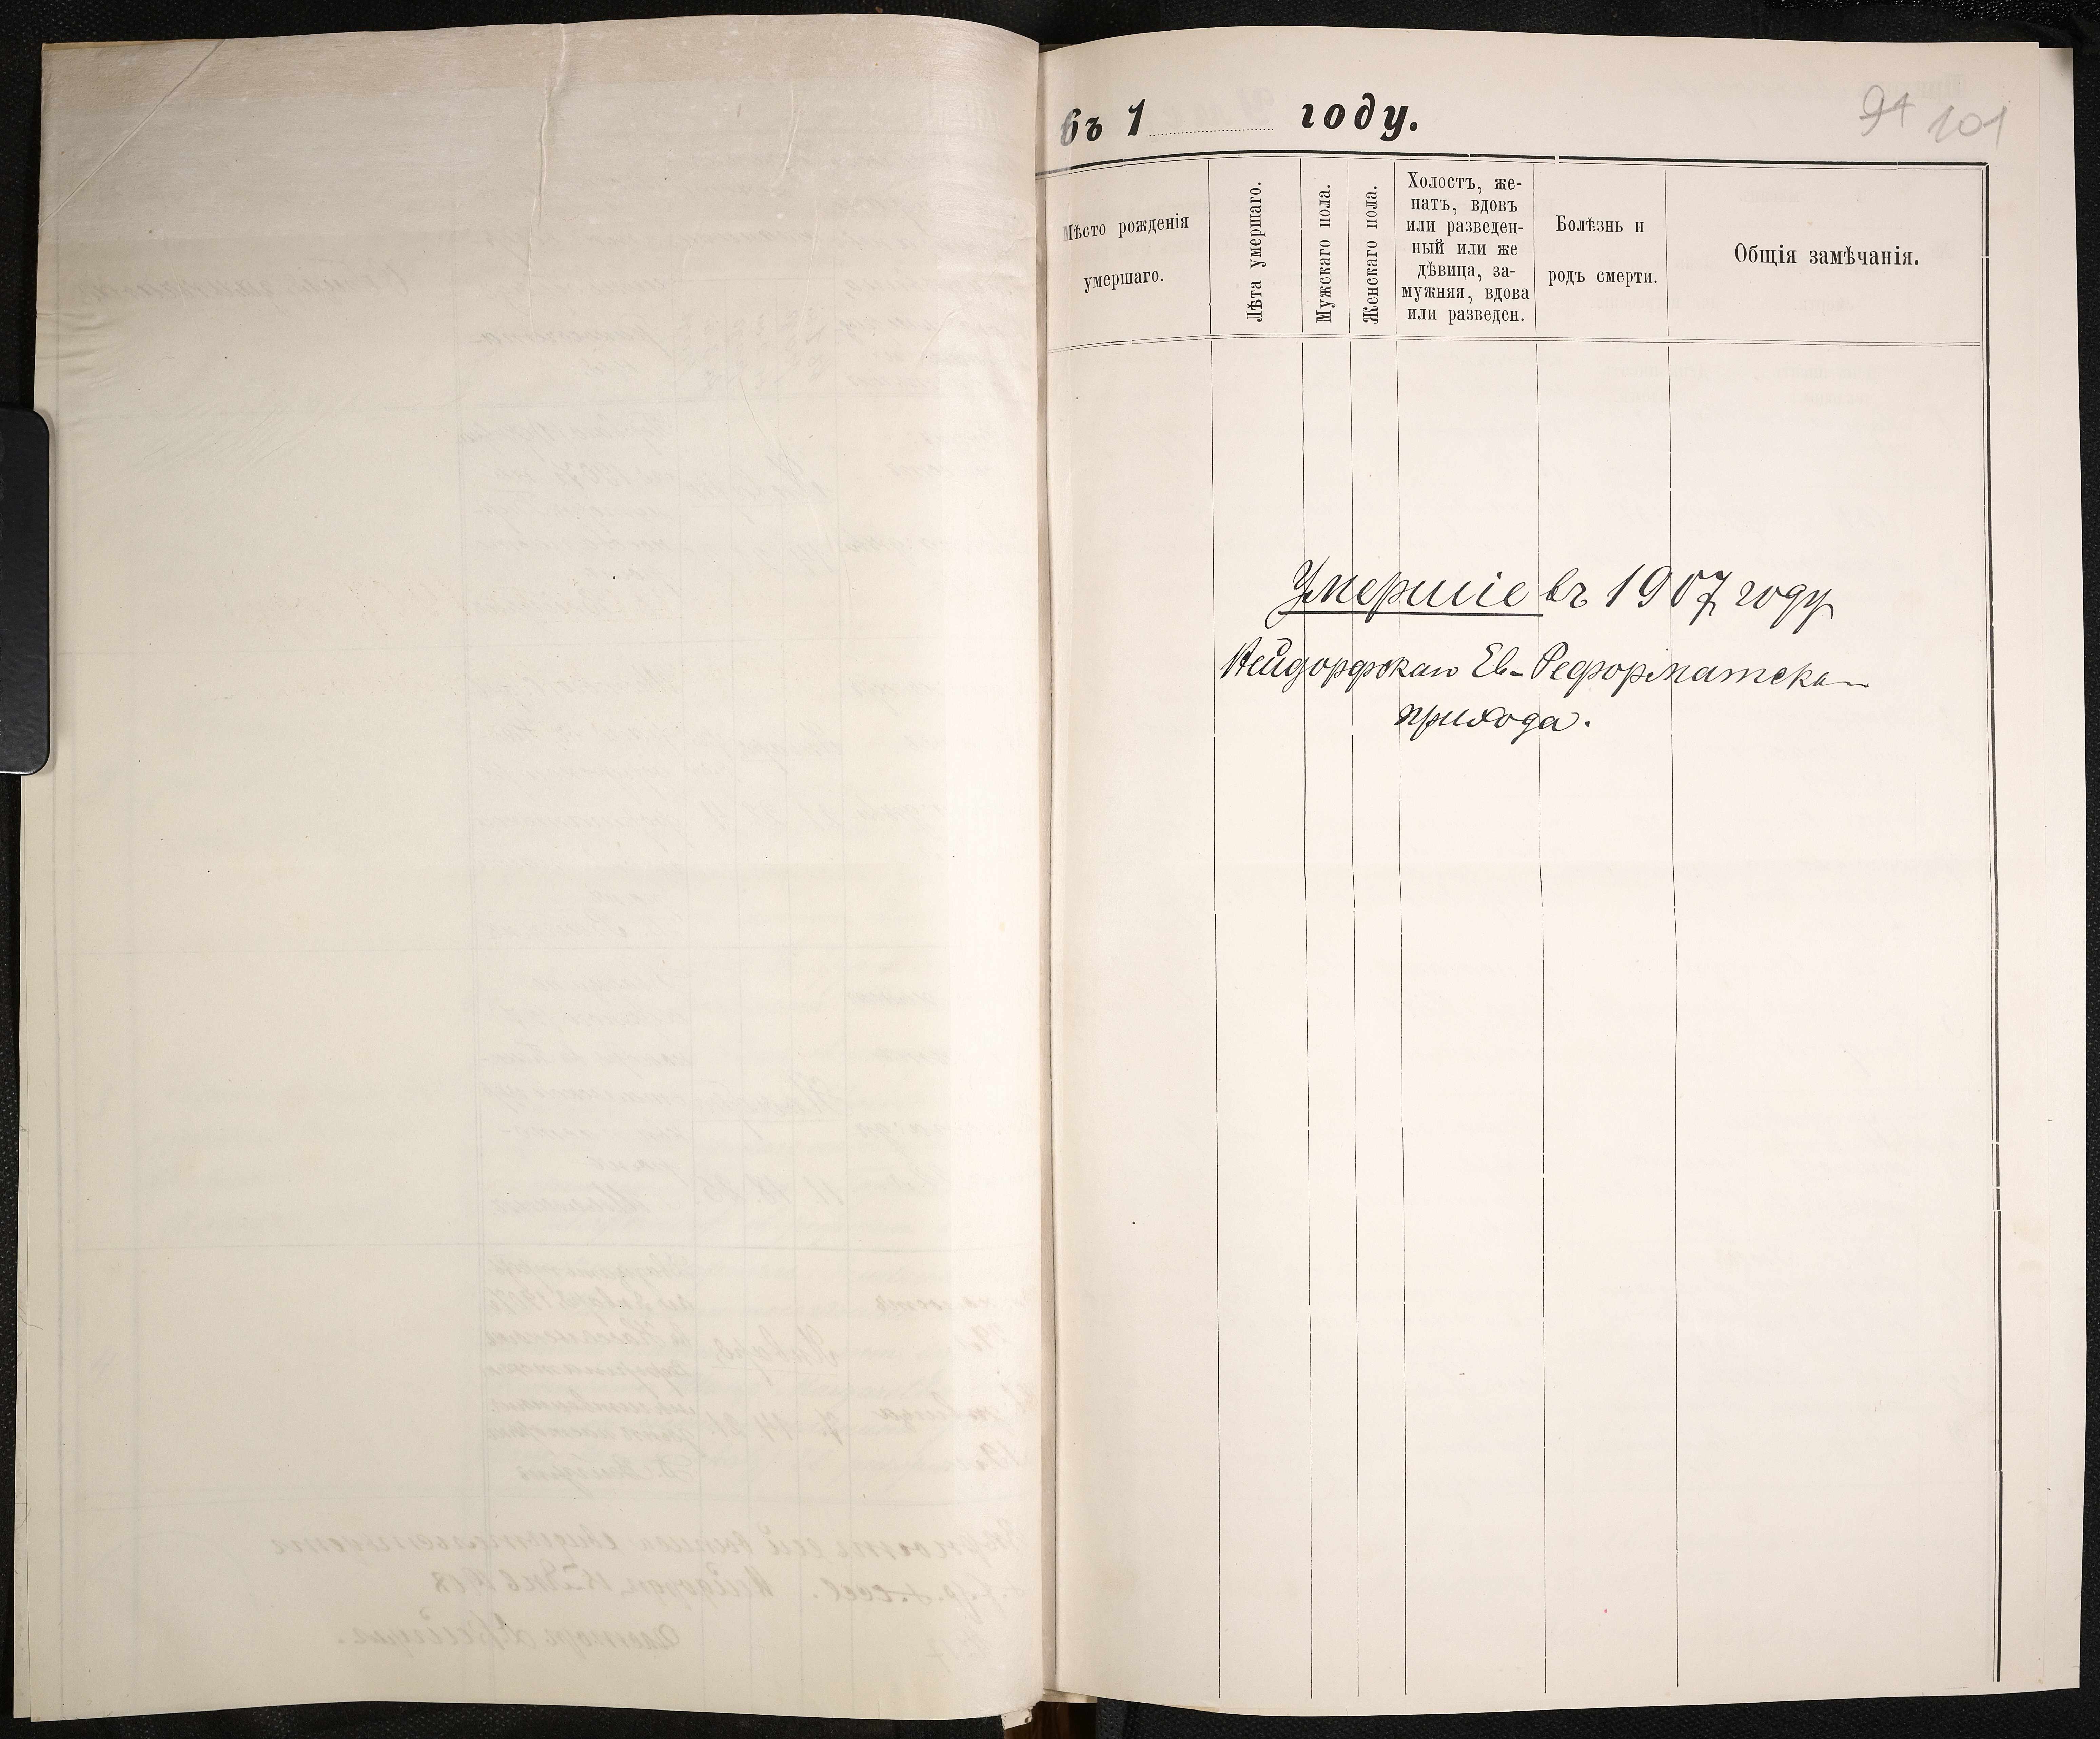 въ 1 году.
91 101
Мѣсто рожденія
умершаго.
Лѣта умершаго.
Мужскаго пола.
Женскаго пола.
Холостъ, же-
натъ, вдовъ
или разведен-
ный или же
дѣвица, за-
мужняя, вдова
или разведен.
Болѣзнь и
родъ смерти.
Общія замѣчанія.
Умершіе въ 1907 году
Ев-Реформатска
прихода.